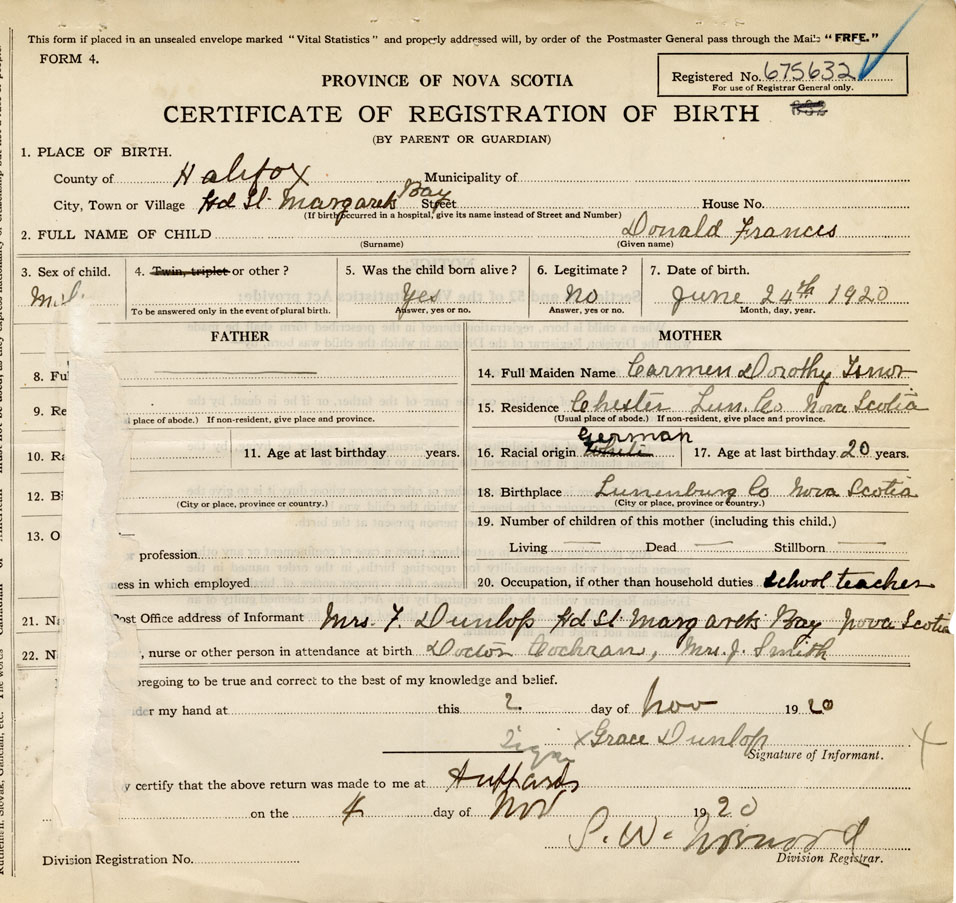 This form if placed in an unsealed envelope marked "Vital Statistics" and properly addressed will, by order of the Postmaster General pass through the Mails "FREE."
FORM 4.
Registered No. 675632
For use of Registrar General only.
PROVINCE OF NOVA SCOTIA
CERTIFICATE OF REGISTRATION OF BIRTH
(BY PARENT OR GUARDIAN)
1. PLACE OF BIRTH.
County of Halifax Municipality of
City, Town or Village Hd St. Margarets Bay Street House No.
(If birth occurred in a hospital, give its name instead of Street and Number)
2. FULL NAME OF CHILD Donald Frances
(Surname) (Given name)
3. Sex of child. 4. Twin, triplet or other? 5. Was the child born alive? 6. Legitimate? 7. Date of birth.
Yes No June 24th 1920
To be answered only in the event of plural birth. Answer, yes or no. Answer, yes or no. Month, day, year.
FATHER MOTHER
8. Fu 14. Full Maiden Name Carmen Dorothy
9. Re 15. Residence Chester Lun. Co Nova Scotia
place of abode.) If non-resident, give place and province. (Usual place of abode.) If non-resident, give place and province.
German
10. Ra 11. Age at last birthday years. 16. Racial origin White 17. Age at last birthday 20 years.
12. Bi 18. Birthplace Lunenburg Co Nova Scotia
(City or place, province or country.) (City or place, province or country.)
13. O 19. Number of children of this mother (including this child.)
profession Living Dead Stillborn
ness in which employed 20. Occupation, if other than household duties school teacher
21. Na Post Office address of Informant Mrs. F. Dunlop Hd St Margarets Bay Nova Scotia
22. N , nurse or other person in attendance at birth Doctor Cochran, Mrs. J. Smith
oregoing to be true and correct to the best of my knowledge and belief.
der my hand at this 2 day of Nov 1920
Sign X Grace Dunlop
Signature of Informant.
y certify that the above return was made to me at Hubbards
on the 4 day of Nov 1920
Division Registration No. Division Registrar.